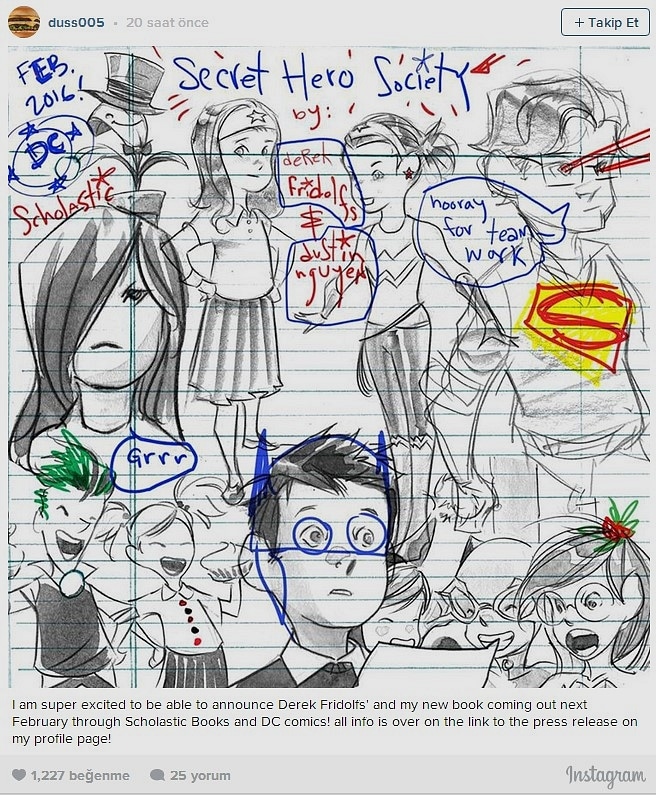 duss005 • 20 saat önce
+ Takip Et
FEB.
2016!
Secret Hero Society
by:
DC
Scholastic
derek
fridolfs
&
dustin
nguyen
hooray
for team
work
S
Grrr
I am super excited to be able to announce Derek Fridolfs' and my new book coming out next
February through Scholastic Books and DC comics! all info is over on the link to the press release on
my profile page!
1,227 beğenme 25 yorum
Instagram